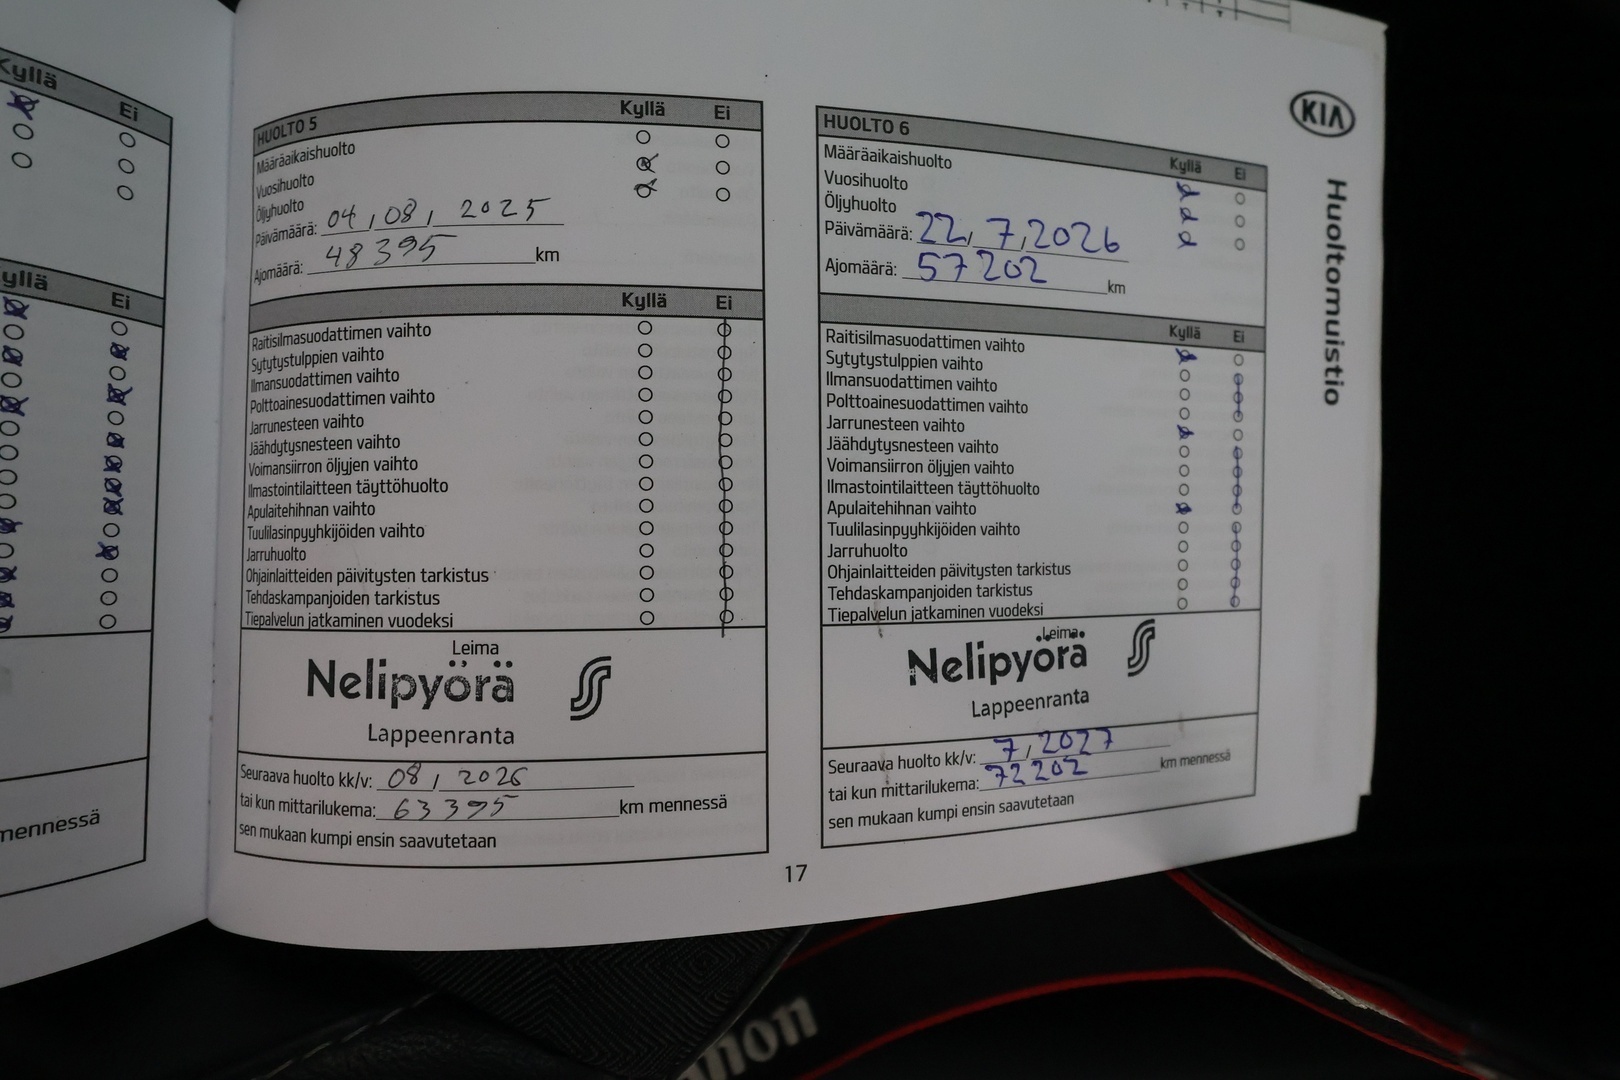 Kyllä
Ei
Kyllä
Ei
mennessä
HUOLTO 5
Kyllä
Ei
Määräaikaishuolto
Vuosihuolto
Öljyhuolto
Päivämäärä: 04, 08, 2025
Ajomäärä: 48395 km
Kyllä
Ei
Raitisilmasuodattimen vaihto
Sytytystulppien vaihto
Ilmansuodattimen vaihto
Polttoainesuodattimen vaihto
Jarrunesteen vaihto
Jäähdytysnesteen vaihto
Voimansiirron öljyjen vaihto
Ilmastointilaitteen täyttöhuolto
Apulaitehihnan vaihto
Tuulilasinpyyhkijöiden vaihto
Jarruhuolto
Ohjainlaitteiden päivitysten tarkistus
Tehdaskampanjoiden tarkistus
Tiepalvelun jatkaminen vuodeksi
Leima
Nelipyörä
Lappeenranta
Seuraava huolto kk/v: 08, 2026
tai kun mittarilukema: 63395 km mennessä
sen mukaan kumpi ensin saavutetaan
17
HUOLTO 6
Kyllä
Ei
Määräaikaishuolto
Vuosihuolto
Öljyhuolto
Päivämäärä: 22, 7, 2026
Ajomäärä: 57202 km
Kyllä
Ei
Raitisilmasuodattimen vaihto
Sytytystulppien vaihto
Ilmansuodattimen vaihto
Polttoainesuodattimen vaihto
Jarrunesteen vaihto
Jäähdytysnesteen vaihto
Voimansiirron öljyjen vaihto
Ilmastointilaitteen täyttöhuolto
Apulaitehihnan vaihto
Tuulilasinpyyhkijöiden vaihto
Jarruhuolto
Ohjainlaitteiden päivitysten tarkistus
Tehdaskampanjoiden tarkistus
Tiepalvelun jatkaminen vuodeksi
Leima
Nelipyörä
Lappeenranta
Seuraava huolto kk/v: 7, 2027
tai kun mittarilukema: 72202 km mennessä
sen mukaan kumpi ensin saavutetaan
KIA
Huoltomuistio
non